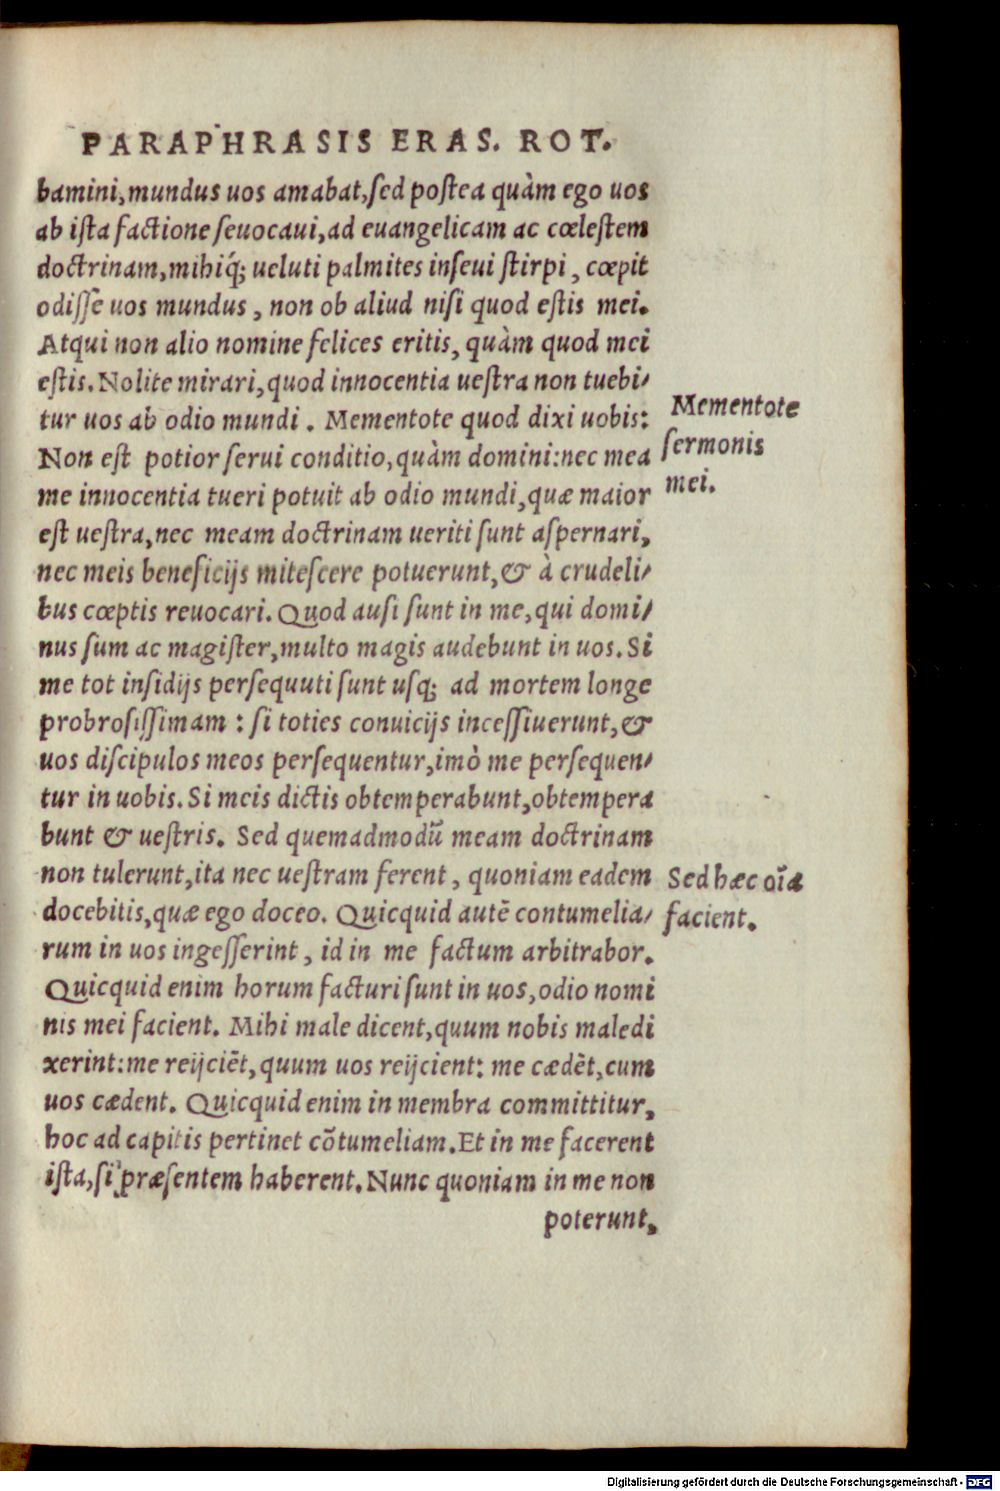 PARAPHRASIS ERAS. ROT.
bamini, mundus uos amabat, ſed poſtea quàm ego uos
ab iſta factione ſeuocaui, ad euangelicam ac cœleſtem
doctrinam, mihiq́; ueluti palmites inſeui ſtirpi, cœpit
odiſſe uos mundus, non ob aliud niſi quod eſtis mei.
Atqui non alio nomine felices eritis, quàm quod mei
eſtis. Nolite mirari, quod innocentia ueſtra non tuebi/
tur uos ab odio mundi. Mementote quod dixi uobis:
Non eſt potior ſerui conditio, quàm domini: nec mea
me innocentia tueri potuit ab odio mundi, quæ maior
eſt ueſtra, nec meam doctrinam ueriti ſunt aſpernari,
nec meis beneficijs miteſcere potuerunt, & à crudeli/
bus cœptis reuocari. Quod auſi ſunt in me, qui domi/
nus ſum ac magiſter, multo magis audebunt in uos. Si
me tot inſidijs perſequuti ſunt uſq; ad mortem longe
probroſiſſimam: ſi toties conuicijs inceſſiuerunt, &
uos diſcipulos meos perſequentur, imò me perſequen/
tur in uobis. Si meis dictis obtemperabunt, obtempera
bunt & ueſtris. Sed quemadmodū meam doctrinam
non tulerunt, ita nec ueſtram ferent, quoniam eadem
docebitis, quæ ego doceo. Quicquid autē contumelia/
rum in uos ingeſſerint, id in me factum arbitrabor.
Quicquid enim horum facturi ſunt in uos, odio nomi
nis mei facient. Mihi male dicent, quum nobis maledi
xerint: me reijciēt, quum uos reijcient: me cædēt, cum
uos cædent. Quicquid enim in membra committitur,
hoc ad capitis pertinet cōtumeliam. Et in me facerent
iſta, ſi præſentem haberent. Nunc quoniam in me non
poterunt,
Mementote
ſermonis
mei.
Sed hæc oīa
facient.
Digitalisierung gefördert durch die Deutsche Forschungsgemeinschaft - DFG